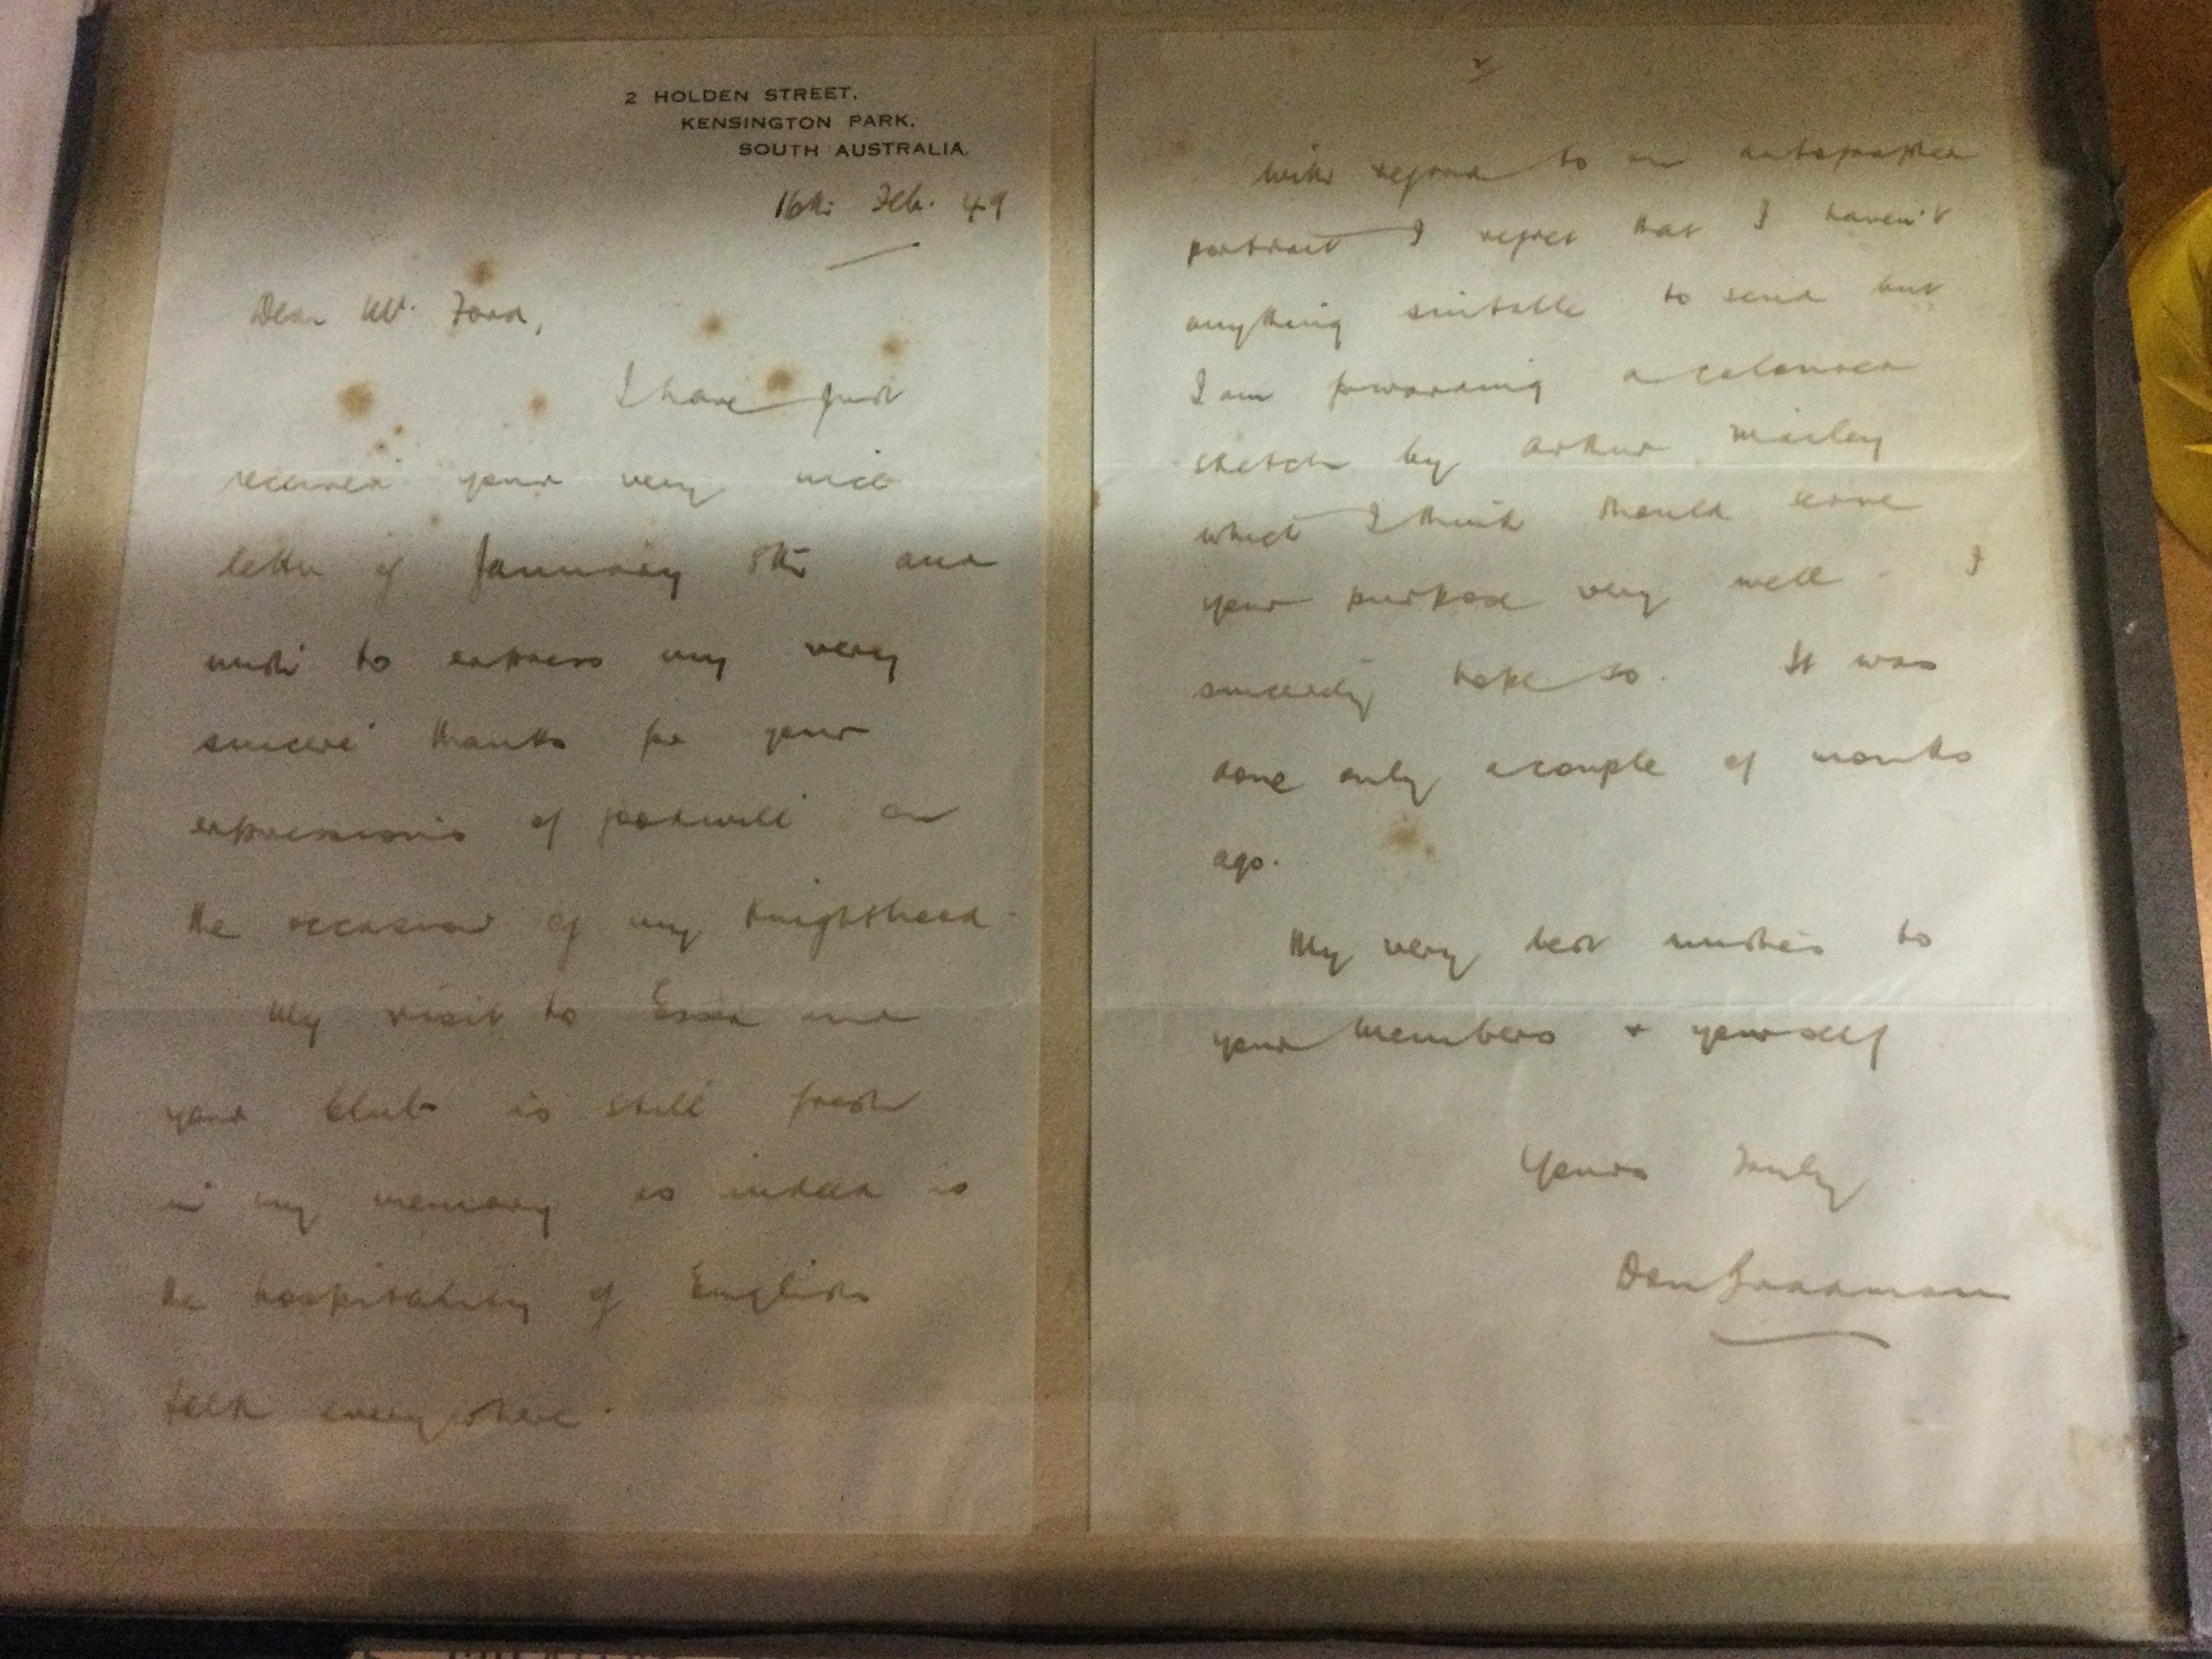 2 HOLDEN STREET.
KENSINGTON PARK.
SOUTH AUSTRALIA.
16th Feb. 49
Dear Mr. Ford,
I have just
received your very nice
letter of January 8th and
wish to express my very
sincere thanks for your
expressions of goodwill on
the occasion of my Knighthood.
My visit to Essex and
your Club is still fresh
in my memory as indeed is
the hospitality of English
folk everywhere.
2
With regard to an autographed
portrait I regret that I haven't
anything suitable to send but
I am forwarding a coloured
sketch by Arthur Mailey
which I think should serve
your purpose very well. I
sincerely hope so. It was
done only a couple of months
ago.
My very best wishes to
your members & yourself
Yours Truly
Don Bradman